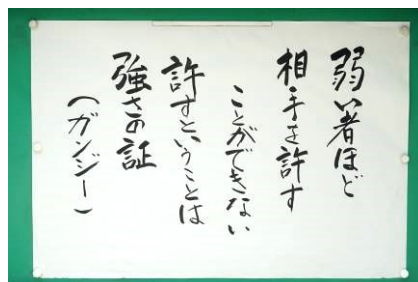 弱い者ほど
相手を許す
ことができない
許すということは
強さの証
(ガンジー)